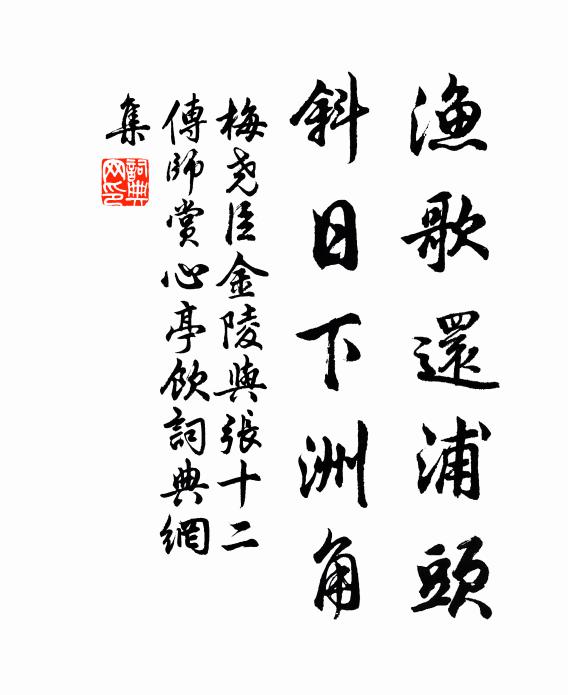 漁歌還浦頭
斜日下洲角
梅堯臣金陵與張十二
傅師賞心亭飲詞典網
集
詞典
网印